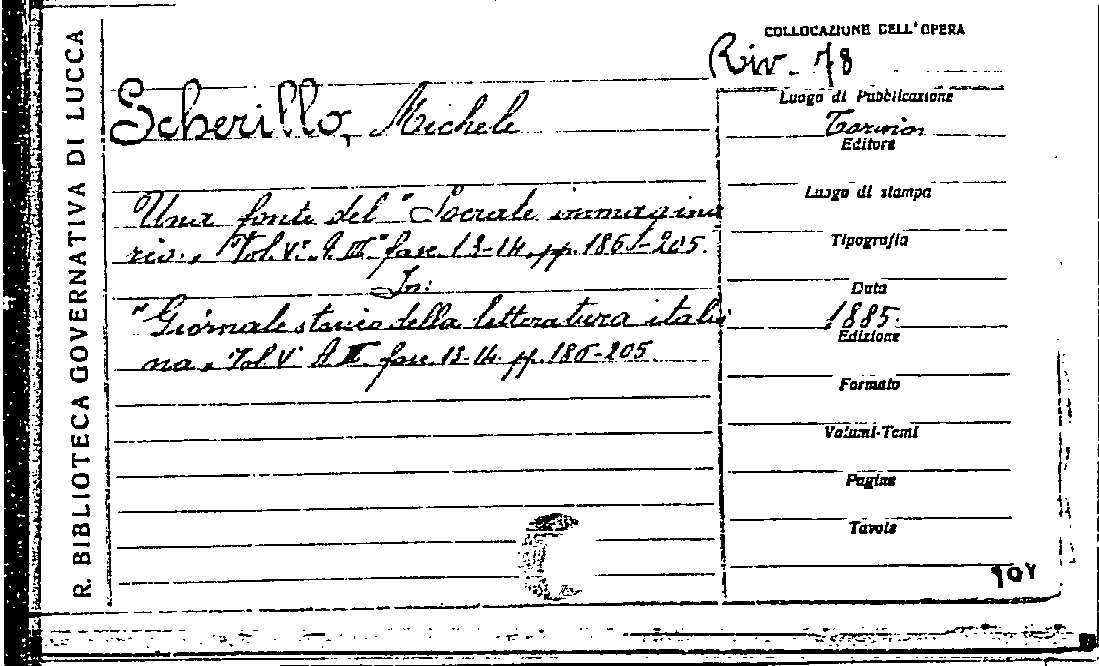 R. BIBLIOTECA GOVERNATIVA DI LUCCA
COLLOCAZIONE DELL'OPERA
Riv. 78
Scherillo, Michele
Una fonte del "Socrate immagina
rio". Vol. V. A. III° fasc. 13-14. pp. 186-205.
In:
"Giornale storico della letteratura italia
na" Vol. V A. III fasc. 13-14. pp. 186-205
Luogo di Pubblicazione
Torino
Editore
Luogo di stampa
Tipografia
Data
1885.
Edizione
Formato
Volumi-Tomi
Pagine
Tavole